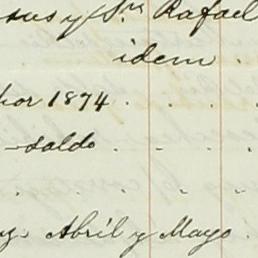 sus y Sra Rafael
idem .
por 1874 . . . .
saldo . . .
. . . .
y. Abril y Mayo .